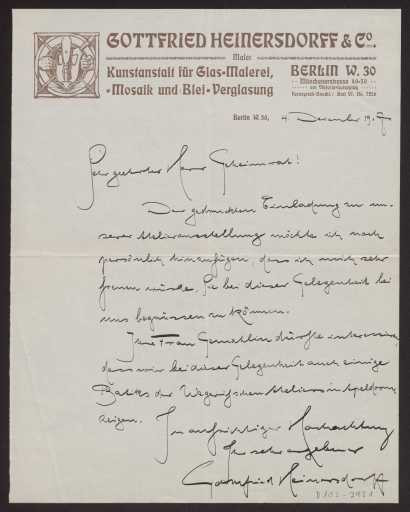 GOTTFRIED HEINERSDORFF & Co.
Maler
Kunstanstalt für Glas-Malerei,
Mosaik und Blei-Verglasung
BERLIN W. 30
Münchenerstrasse
am Victoria-Luiseplatz
Berlin W. 30, 4 Dezember 1907
Sehr geehrter Herr Geheimrat!
Der gedruckten Einladung zu un-
serer Atelierausstellung möchte ich noch
persönlich hinzufügen, dass ich mich sehr
freuen würde, Sie bei dieser Gelegenheit bei
uns begrüssen zu können.
Ihre Frau Gemahlin dürfte interessieren,
dass wir bei dieser Gelegenheit auch einige
Batiks der Wegerif'schen Ateliers in Apeldoorn
zeigen.
In aufrichtiger Hochachtung
Ihr sehr ergebener
Gottfried Heinersdorff